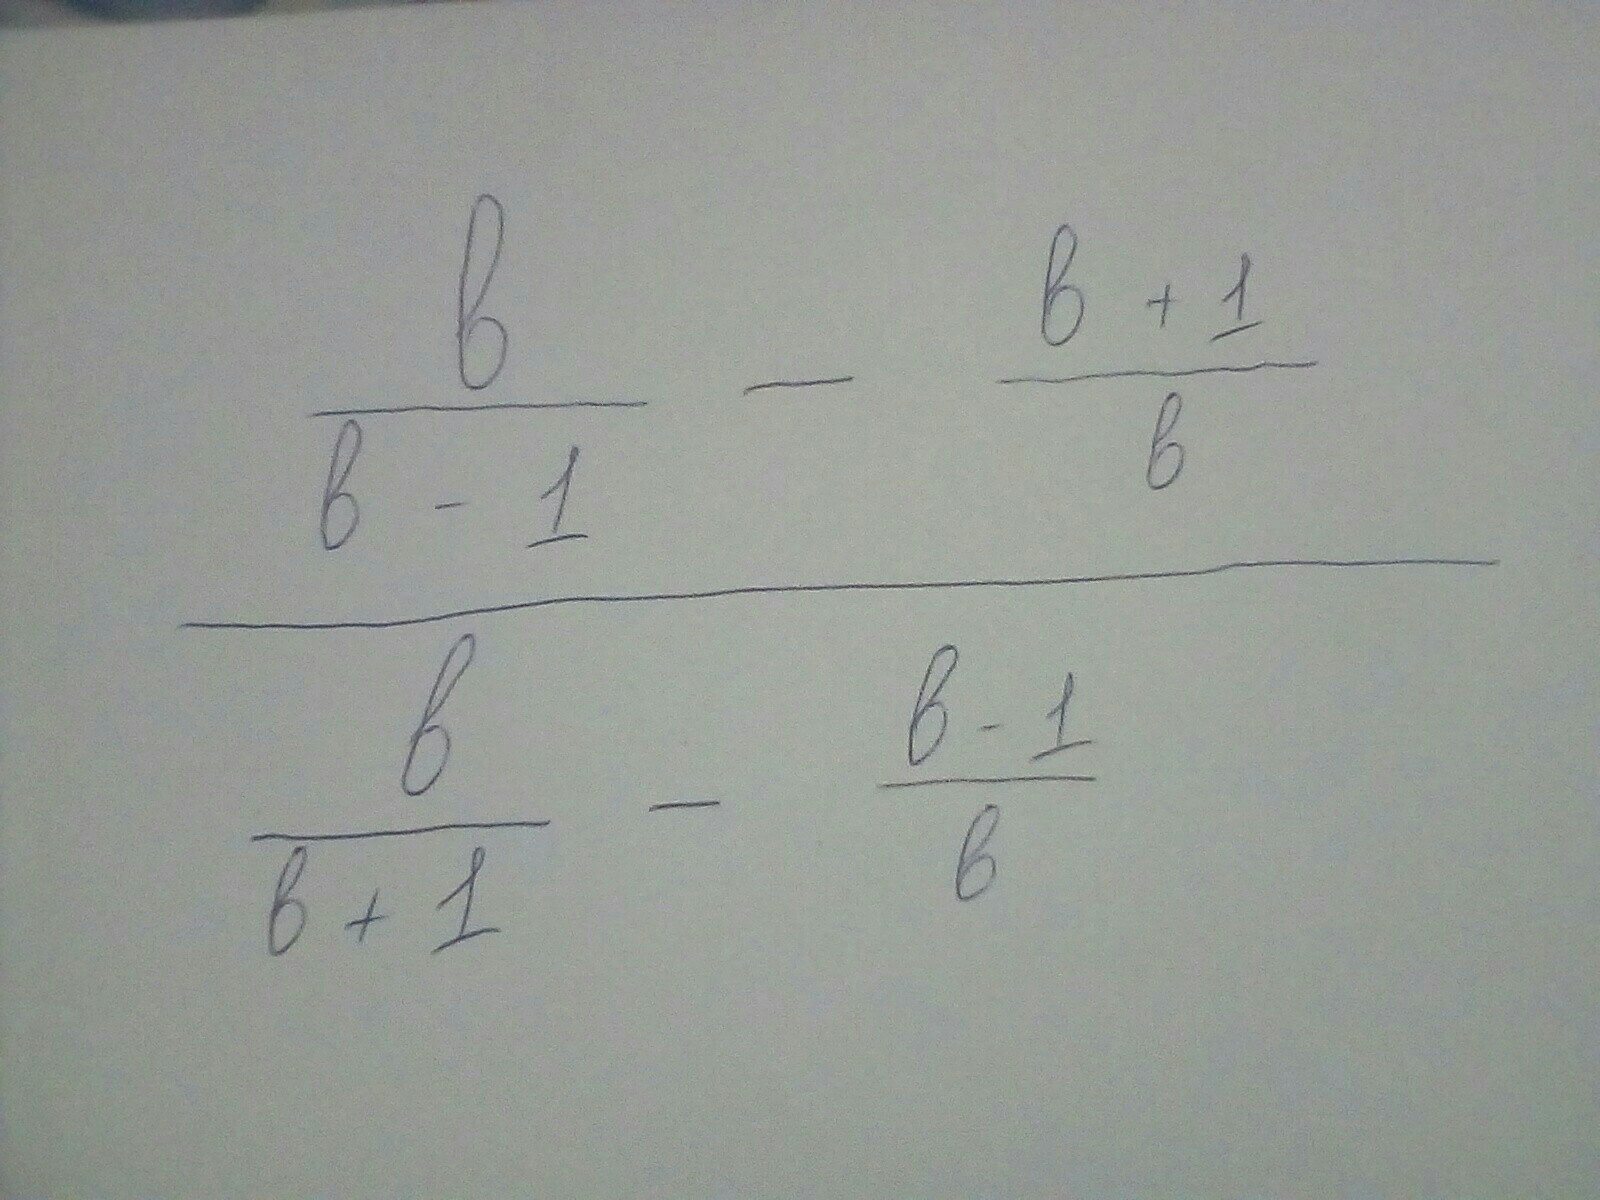 b/(b - 1) - (b + 1)/b
b/(b + 1) - (b - 1)/b